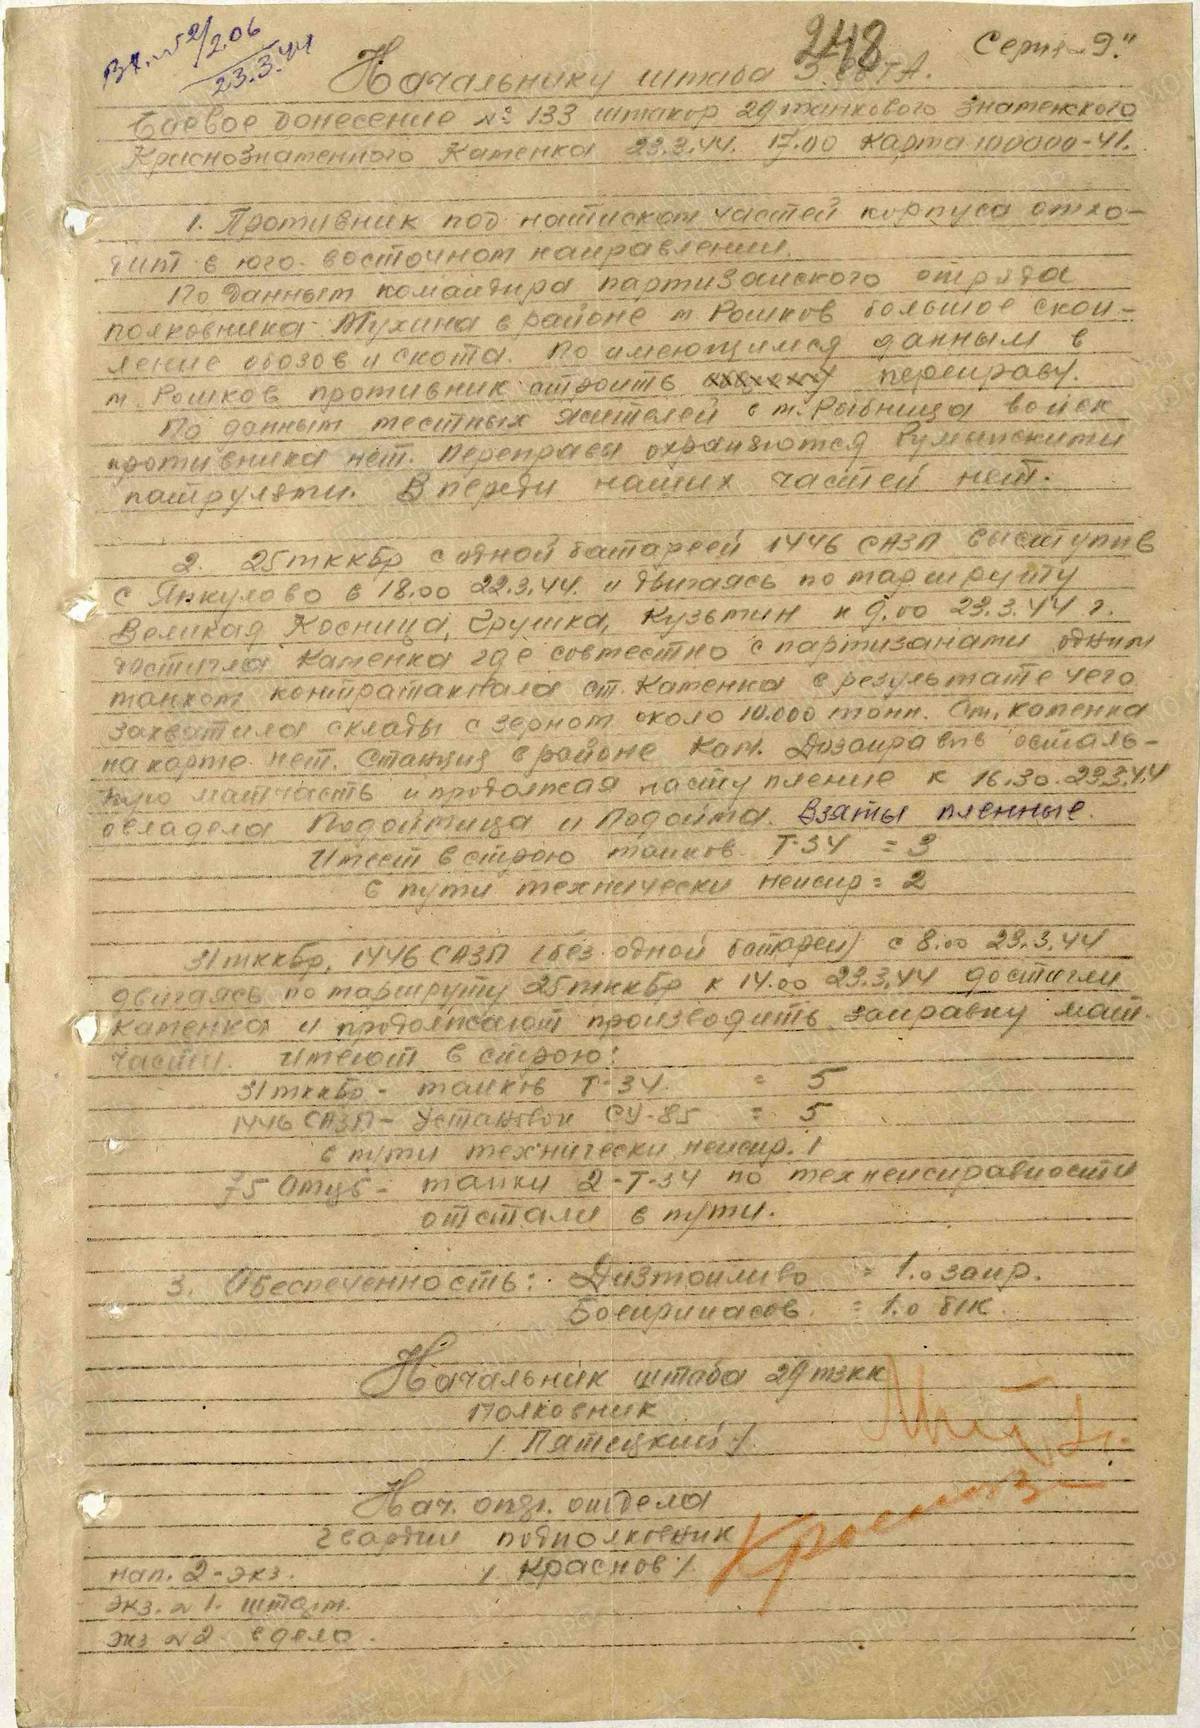 Вх. №2/206
23.3.44
248
Серия "9"
Начальнику штаба 5 гв ТА.
Боевое донесение № 133 штакор 29 танкового Знаменского
Краснознаменного Каменка 23.3.44. 17.00 карта 100000-41.
1. Противник под натиском частей корпуса отхо-
дит в юго-восточном направлении.
По данным командира партизанского отряда
полковника Мухина в районе м. Рошков большое скоп-
ление обозов и скота. По имеющимся данным в
м. Рошков противник строить переправу.
По данным местных жителей в м. Рыбница войск
противника нет. Переправы охраняются Румынскими
патрулями. Впереди наших частей нет.
2. 25 тккбр с одной батареей 1446 САЗП выступив
с Янкулово в 18.00 22.3.44. и двигаясь по маршруту
Великая Косница, Грушка, Кузьмин к 9.00 23.3.44 г.
достигла Каменка где совместно с партизанами одним
танком контратаковала ст. Каменка в результате чего
захватила склады с зерном около 10.000 тонн. Ст. Каменка
на карте нет. Станция в районе Кам. Дозаправив осталь-
ную матчасть и продолжая наступление к 16.30 23.3.44
овладела Подоймица и Подойма. Взяты пленные.
Имеет в строю танков Т-34 = 3
в пути технически неиспр = 2
31 тккбр, 1446 САЗП (без одной батареи) с 8.00 23.3.44
двигаясь по маршруту 25 тккбр к 14.00 23.3.44 достигли
Каменка и продолжают производить заправку мат.
части. Имеют в строю:
31 тккбр - танков Т-34. = 5
1446 САЗП - Установок СУ-85 = 5
в пути технически неиспр. 1
75 Отцб - танки 2-Т-34 по техненсиравности
отстали в пути.
3. Обеспеченность: Дизтопливо = 1.0 запр.
Боеприпасов = 1.0 б\к.
Начальник штаба 29 тзкк
Полковник
/ Пятецкий /
Нач. опер. отдела
гвардии подполковник
/ Краснов /
нап. 2-экз.
экз. №1. штарм.
экз №2 в дело.